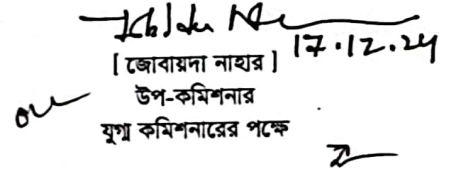 17.12.24
[ জোবায়দা নাহার ]
উপ-কমিশনার
যুগ্ম কমিশনারের পক্ষে